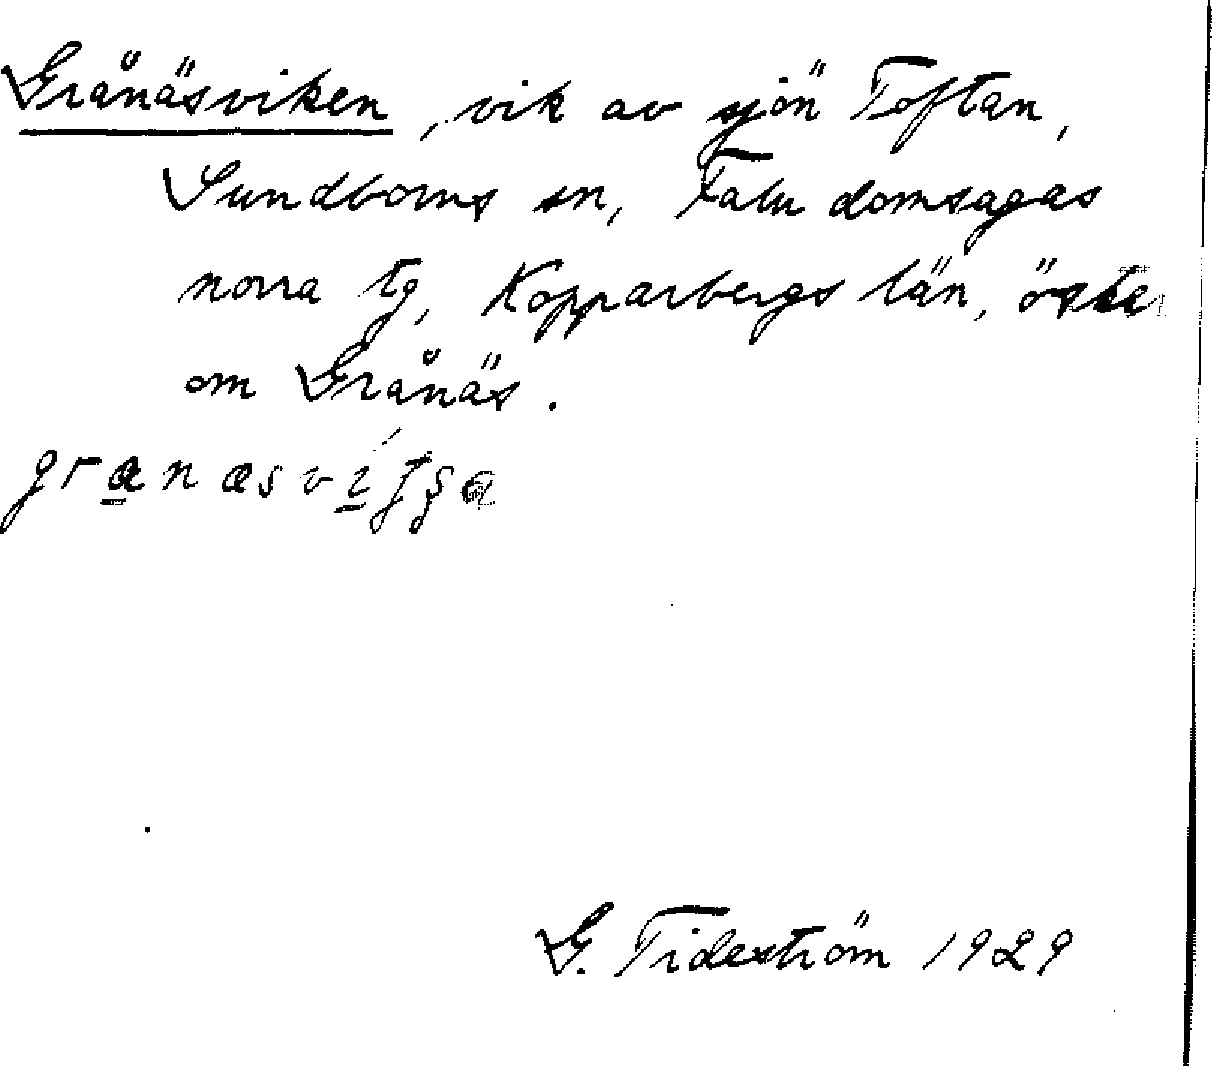 Grånäsviken, vik av sjön Toftan,
Sundborns sn, Falu domsagas
norra tg, Kopparbergs län, öster
om Grånäs.
G. Tideström 1929